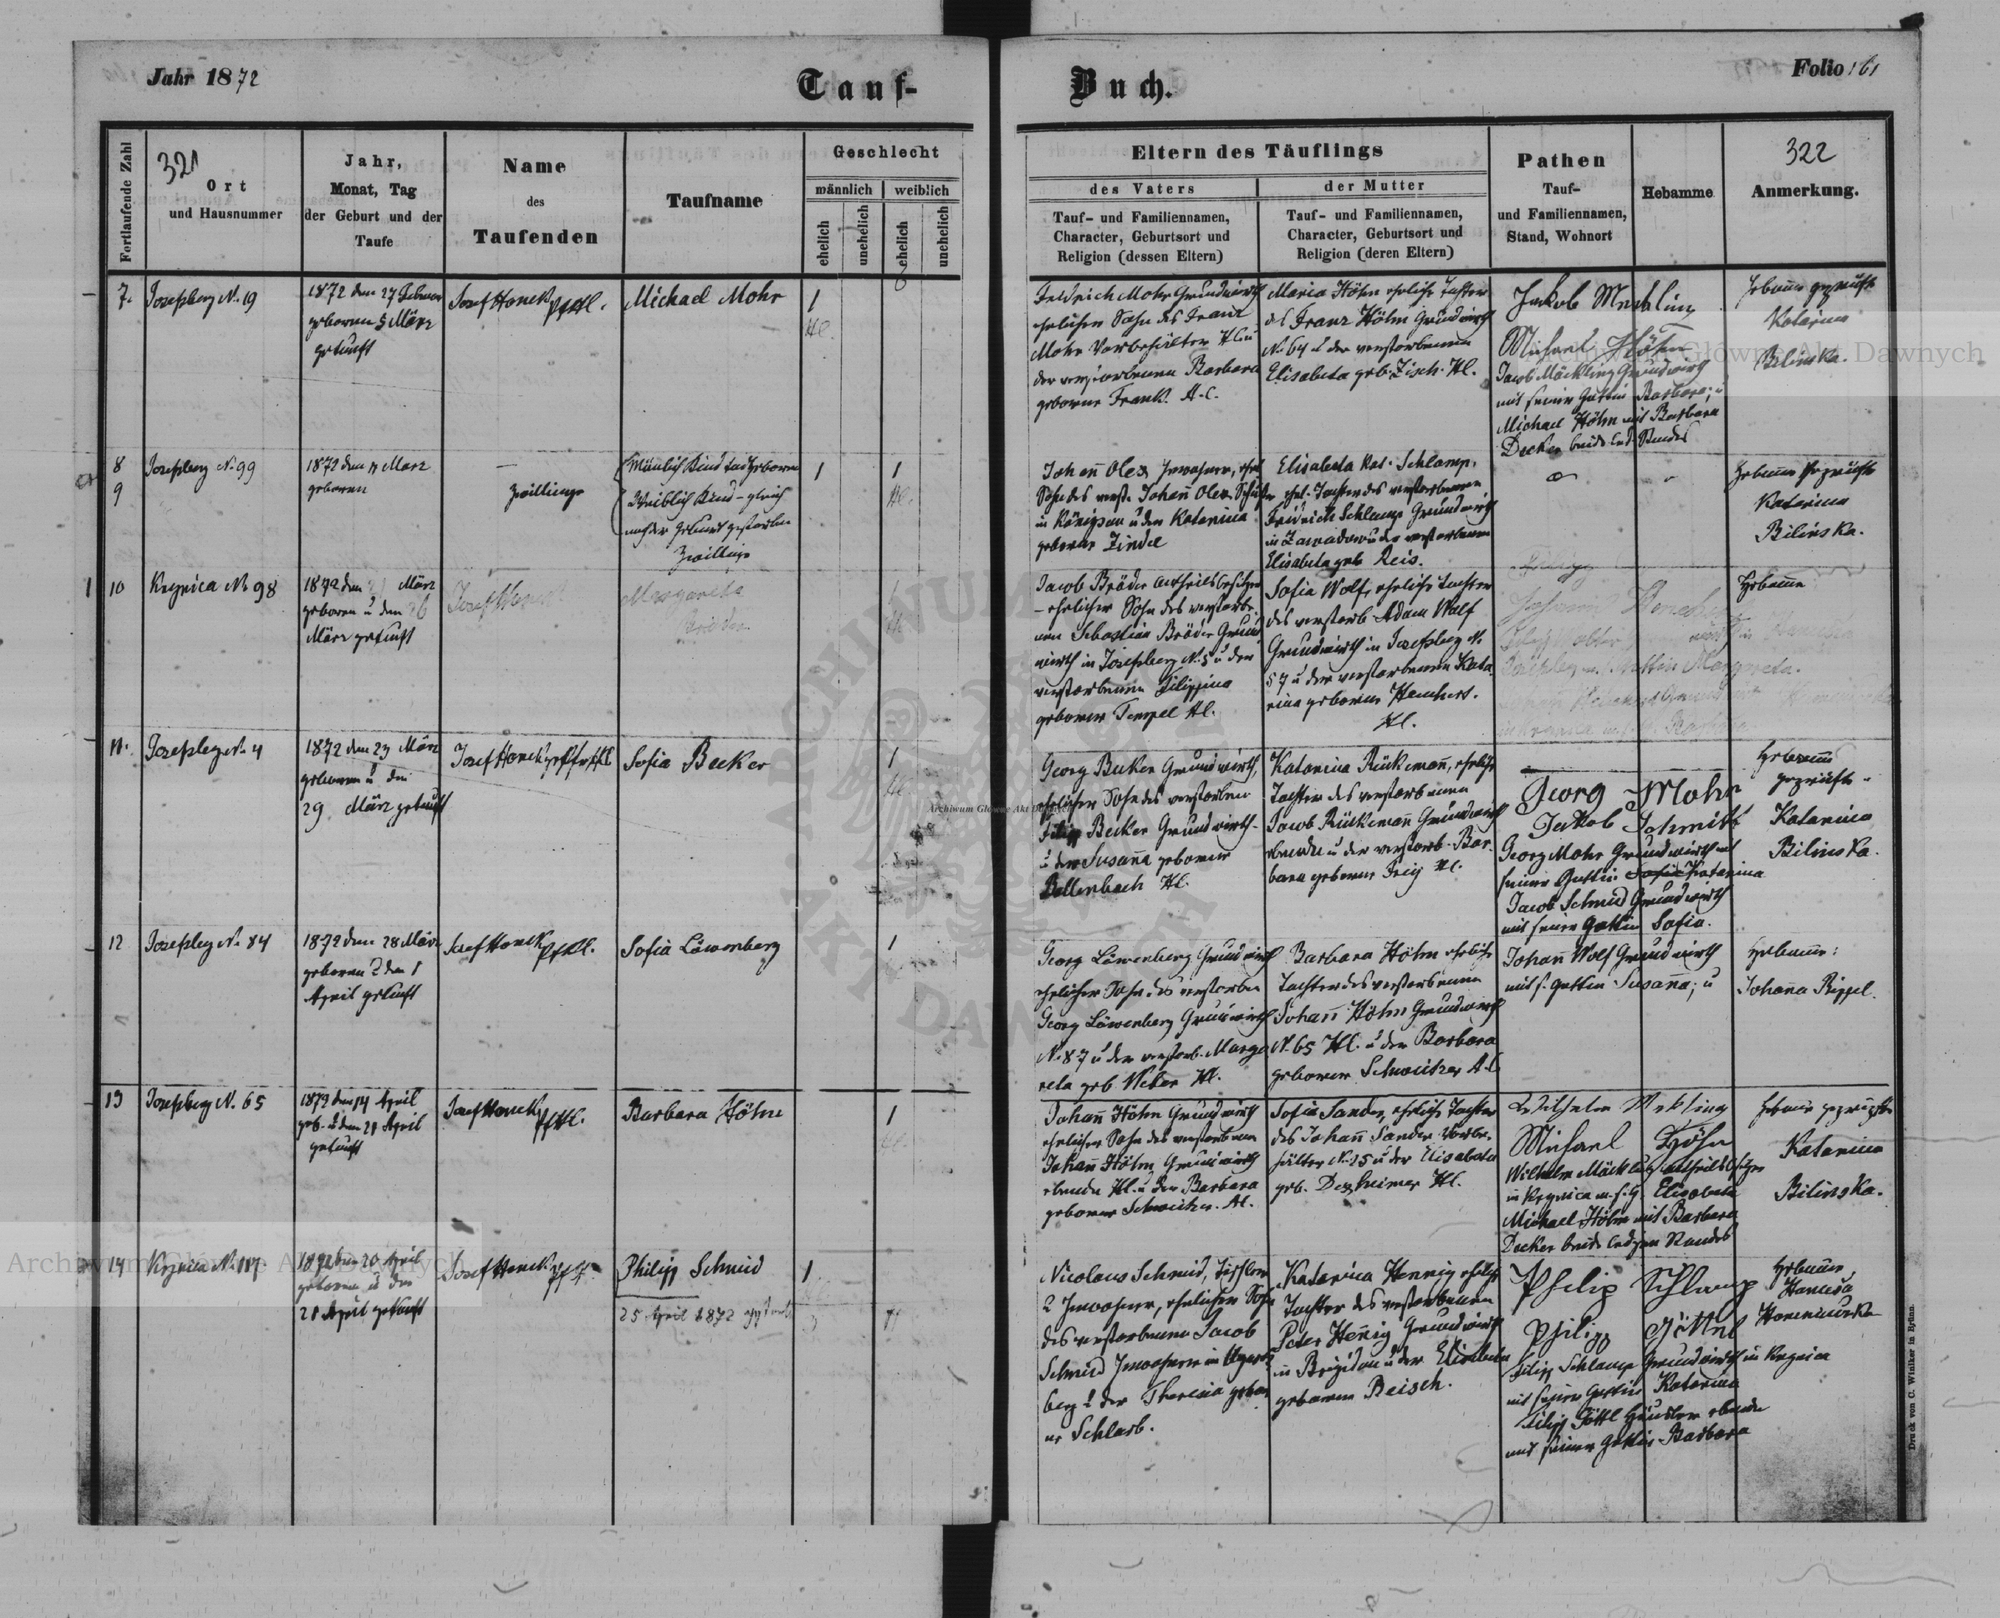 Jahr 1872
Tauf-
Buch.
Folio 161
Fortlaufende Zahl
321
Ort
und Hausnummer
Jahr,
Monat, Tag
der Geburt und der
Taufe
Name
des
Taufenden
Taufname
Geschlecht
männlich
weiblich
ehelich
unehelich
ehelich
unehelich
Eltern des Täuflings
des Vaters
Tauf- und Familiennamen,
Character, Geburtsort und
Religion (dessen Eltern)
der Mutter
Tauf- und Familiennamen,
Character, Geburtsort und
Religion (deren Eltern)
Pathen
Tauf-
und Familiennamen,
Stand, Wohnort
Hebamme
322
Anmerkung.
7.
Josefsberg N. 19
1872 den 27 Februar
geboren 5 März
getauft
Josef Honek
Michael Mohr
1
Fridrich Mohr Grundwirth
ehelicher Sohn des Franz
Mohr Vorbehälter
der verstorbenen Barbara
geborne Frank. A.C.
Maria Höhn eheliche Tochter
des Franz Höhn Grundwirth
N. 64 u der verstorbenen
Elisabeta geb. Zisch. Hl.
Jakob Mechling
Michael Höhn
Jacob Mäckling Grundwirth
mit seiner Gattin Barbara; u
Michael Höhn mit Barbara
Decker beide led. Standes
Hebamme geprüfte
Katarina
Bilinska.
8
9
Josefsberg N. 99
1872 den März
geboren
Zwillinge
Mänlich Kind tod geboren
Weiblich Kind - gleich
nach der Geburt gestorben
Zwillinge
1
1
Johann Olex Inwohner, ehel
Sohn des verst. Johann Olex Schuster
in Königsau u der Katarina
geborne Zindel
Elisabeta Schlamp,
ehel. Tochter des verstorbenen
Fridrich Schlamp Grundwirth
in Zawadow u der verstorbenen
Elisabeta geb. Reis.
Hebamme geprüfte
Katarina
Bilinska.
10
Krynica N. 98
1872 den März
geboren u den 26
März getauft
Josef Honek
Margareta
Bröder
Jacob Bröder Antheilsbesitzer
- ehelicher Sohn des verstorbe-
nen Sebastian Bröder Grund
wirth in Josefsberg N. 5 u der
verstorbenen Filippina
geborne Tempel Hl.
Sofia Wolf, eheliche Tochter
des verstorb. Adam Wolf
Grundwirth in Josefsberg N.
57 u der verstorbenen Kata
rina geborne
Hl.
Margareta.
Hebamme
11.
Josefsberg N. 4
1872 den 23 März
geboren u den
29. März getauft
Josef Honek
Sofia Becker
1
Georg Becker Grundwirth,
ehelicher Sohn des verstorbenen
Filipp Becker Grundwirth
u der Susanna geborne
Bollenbach Hl.
Katarina Rückemann, eheliche
Tochter des verstorbenen
Jacob Rückemann Grundwirth
ebenda u der verstorb. Bar
bara geborne Hl.
Georg Mohr
Jakob Schmitt
Georg Mohr Grundwirth mit
seiner Gattin Katarina
Jacob Schmid Grundwirth
mit seiner Gattin Sofia.
Hebamme
geprüfte
Katarina
Bilinska.
12
Josefsberg N. 84
1872 den 28 März
geboren u den 1
April getauft
Josef Honek
Sofia Löwenberg
1
Georg Löwenberg Grundwirth
ehelicher Sohn des verstorben
Georg Löwenberg Grundwirth
N. 87 u der verstorb. Marga
reta geb. Weber Hl.
Barbara Höhn eheliche
Tochter des verstorbenen
Johann Höhn Grundwirth
N. 65 Hl. u der Barbara
geborne Schweitzer
Johann Wolf Grundwirth
mit s. Gattin Susanna; u
Hebamme:
Johanna Rippel.
13
Josefsberg N. 65
1872 den 14 April
geb. u den 21 April
getauft
Josef Honek
Barbara Höhn
1
Johann Höhn Grundwirth
ehelicher Sohn des verstorbenen
Johann Höhn, Grundwirth
ebenda Hl. u der Barbara
geborne Schweitzer. Hl.
Sofia Sander, eheliche Tochter
des Johann Sander Vorbe-
hälter N. 25 u der Elisabeta
geb. Dexheimer Hl.
Wilhelm Mekling
Michael Höhn
Wilhelm Mäckling Antheilsbesitzer
in Krynica m. s. G. Elisabeta
Michael Höhn mit Barbara
Decker beide ledigen Standes
Hebamme geprüfte
Katarina
Bilinska.
14
Krynica N. 117
1872 den 20 April
geboren u den
21 April getauft
Josef Honek
Philipp Schmid
25 April 1872 gestorb.
1
Nicolaus Schmid, Tischler
u Inwohner, ehelicher Sohn
des verstorbenen Jacob
Schmid Inwohner in Ugarts
berg u der Theresia gebor
ne Schlarb.
Katarina Hennig eheliche
Tochter des verstorbenen
Peter Hennig Grundwirth
in Brigidau u der Elisabeta
geborene Beisch.
Philip Schlamp
Philipp Göttel
Filipp Schlamp Grundwirth in Krynica
mit seiner Gattin Katarina
Filipp Göttl Häusler ebenda
mit seiner Gattin Barbara
Hebamme,
Druck von C. Winiker in Brünn.
Archiwum Główne Akt Dawnych
Archiwum Główne Akt Dawnych
Archiwum Główne Akt Dawnych